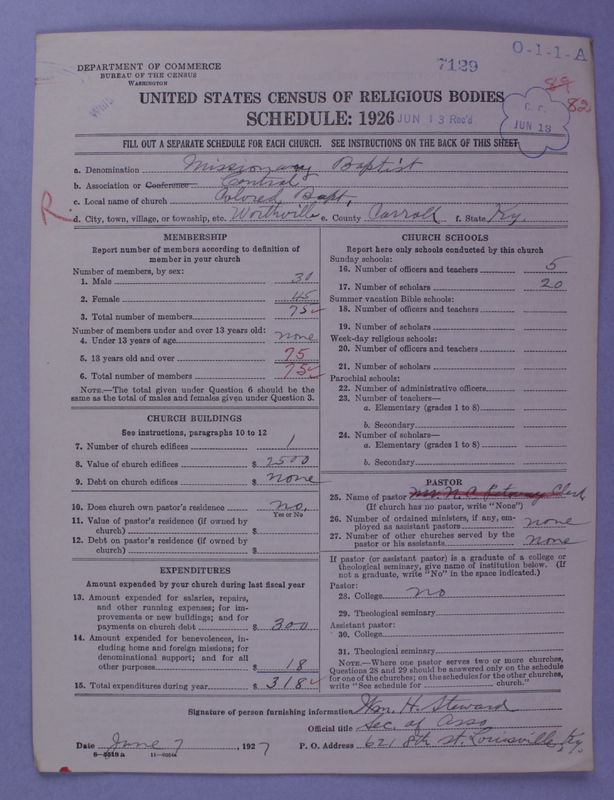 O-1-1-A
DEPARTMENT OF COMMERCE
BUREAU OF THE CENSUS
WASHINGTON
7129
89
82
UNITED STATES CENSUS OF RELIGIOUS BODIES
C. C.
JUN 13
SCHEDULE: 1926 JUN 13 Rec'd
FILL OUT A SEPARATE SCHEDULE FOR EACH CHURCH. SEE INSTRUCTIONS ON THE BACK OF THIS SHEET
a. Denomination Missionary Baptist
b. Association or Conference Central
c. Local name of church Colored Bapt,
R. d. City, town, village, or township, etc. Worthville e. County Carroll f. State Ky.
MEMBERSHIP
Report number of members according to definition of
member in your church
Number of members, by sex:
1. Male 30
2. Female 45
3. Total number of members 75
Number of members under and over 13 years old:
4. Under 13 years of age none
5. 13 years old and over 75
6. Total number of members 75
NOTE.—The total given under Question 6 should be the
same as the total of males and females given under Question 3.
CHURCH BUILDINGS
See instructions, paragraphs 10 to 12
7. Number of church edifices 1
8. Value of church edifices $ 2500
9. Debt on church edifices $ none
10. Does church own pastor's residence no.
Yes or No
11. Value of pastor's residence (if owned by
church) $
12. Debt on pastor's residence (if owned by
church) $
EXPENDITURES
Amount expended by your church during last fiscal year
13. Amount expended for salaries, repairs,
and other running expenses; for im-
provements or new buildings; and for
payments on church debt $ 300
14. Amount expended for benevolences, in-
cluding home and foreign missions; for
denominational support; and for all
other purposes $ 18
15. Total expenditures during year $ 318
CHURCH SCHOOLS
Report here only schools conducted by this church
Sunday schools:
16. Number of officers and teachers 5
17. Number of scholars 20
Summer vacation Bible schools:
18. Number of officers and teachers
19. Number of scholars
Week-day religious schools:
20. Number of officers and teachers
21. Number of scholars
Parochial schools:
22. Number of administrative officers
23. Number of teachers—
a. Elementary (grades 1 to 8)
b. Secondary
24. Number of scholars—
a. Elementary (grades 1 to 8)
b. Secondary
PASTOR
25. Name of pastor Clerk
(If church has no pastor, write "None")
26. Number of ordained ministers, if any, em-
ployed as assistant pastors none
27. Number of other churches served by the
pastor or his assistants none
If pastor (or assistant pastor) is a graduate of a college or
theological seminary, give name of institution below. (If
not a graduate, write "No" in the space indicated.)
Pastor:
28. College no
29. Theological seminary
Assistant pastor:
30. College
31. Theological seminary
NOTE.—Where one pastor serves two or more churches,
Questions 28 and 29 should be answered only on the schedule
for one of the churches; on the schedules for the other churches,
write "See schedule for church."
Signature of person furnishing information Wm. H. Steward
Official title Sec. of Asso
Date June 7, 1927 P. O. Address 621 8th St. Louisville, Ky.